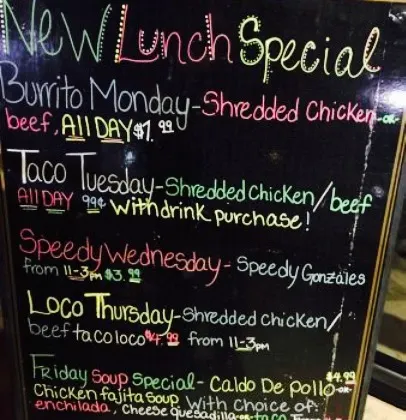 New Lunch Special
Burrito Monday-Shredded Chicken-or-
beef, All DAY $1.99
Taco Tuesday-Shredded Chicken/beef
All DAY 99¢ with drink purchase!
Speedy Wednesday- Speedy Gonzales
from 11-3pm $3.99
Loco Thursday-Shredded Chicken/
beef taco loco $4.99 from 11-3pm
Friday Soup Special- Caldo De pollo $4.99 -or-
Chicken fajita soup With Choice of:
enchilada, cheese quesadilla -or- taco